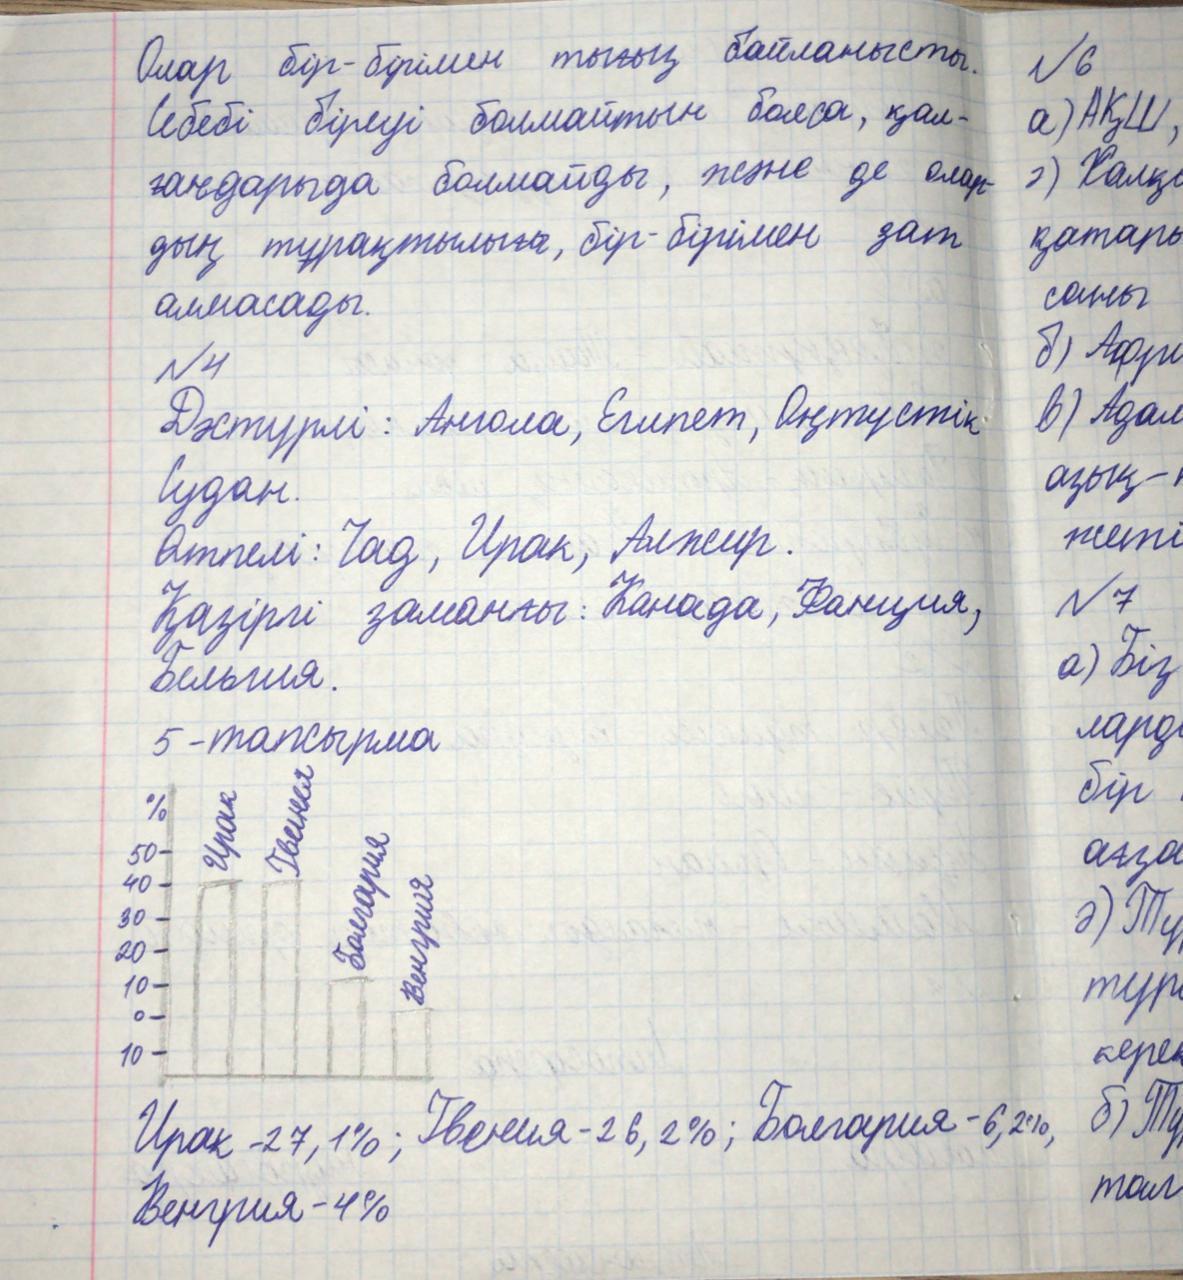 Олар бір-бірімен тығыз байланысты.
Себебі біреуі болмайтын болса, қал-
ғандарыда болмайды, және де олар-
дың тұрақтылыға, бір-бірімен зат
алмасады.
№4
Дәстүрлі: Ангола, Египет, Оңтустік
Судан.
Өтпелі: Чад, Ирак, Алжир.
Қазіргі заманғы: Канада, Фанция,
Бельгия.
5-тапсырма
%
Ирак
Гвенея
Болгария
Венгрия
50
40
30
20
10
0
10
Ирак -27,1%; Гвения-26,2%; Болгария-6,2%,
Венгрия-4%
№6
а) АҚШ,
ә) Халқ
қатары
саны
б) Афри
в) Адам
азық-
жеті
№7
а) Біз
ларды
бір
ағза
ә) Тұ
тұр
керек
б) Тұ
тал